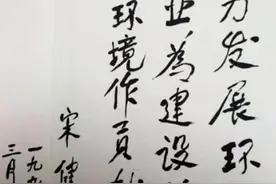 力发展环
业為建设
环境作贡
宋健
一九九
三月